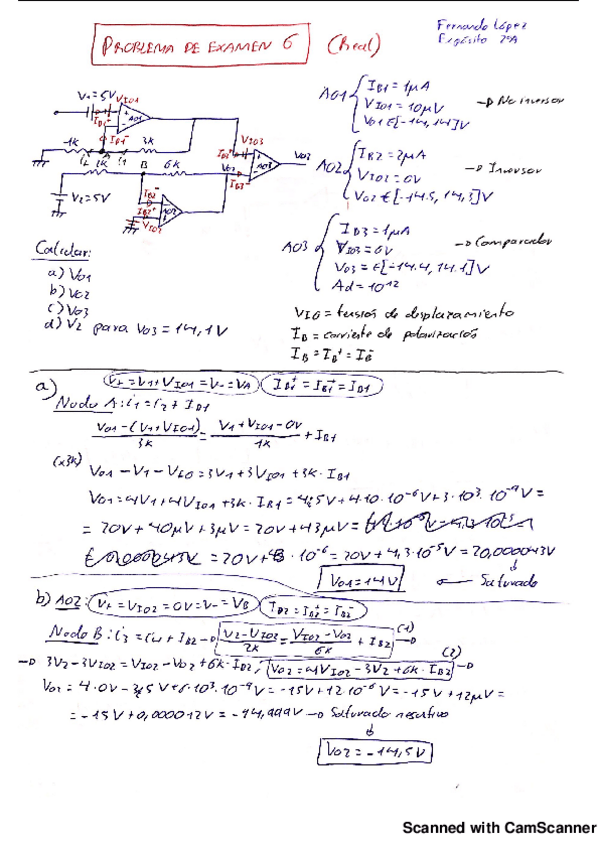 Fernando López
Expósito 2ºA
PROBLEMA DE EXAMEN 6 (Real)
V1=5V
VIO1
IB1+
IB1-
AO1
1K
3K
A
i2
i1
2K
B
6K
VIO3
AO3
VO3
VO2
IB2-
IB2+
VIO2
AO2
V2=5V
AO1 { IB1=1μA
VIO1=10μV → No inversor
VO1 ∈ [-14, 14]V
AO2 { IB2=2μA
VIO2=0V → Inversor
VO2 ∈ [-14.5, 14,3]V
AO3 { IB3=1μA
VIO3=0V → Comparador
VO3=∈[-14.4, 14.1]V
Ad=10^12
Calcular:
a) VO1
b) VO2
c) VO3
d) V2 para VO3=14,1V
VIO = tensión de desplazamiento
IB = corriente de polarización
IB = IB+ = IB-
a) V+=V1+VIO1=V-=VA IB1+=IB1-=IB1
Nodo A: i1=i2+IB1
VO1-(V1+VIO1)/3K = V1+VIO1-0V/1K + IB1
(x3K)
VO1=4V1+4VIO1+3K·IB1=4·5V+4·10·10^-6V+3·10^3·10^-9V=
=20V+40μV+3μV=20V+43μV=
=20V+43·10^-6=20V+4,3·10^-5V=20,000043V
VO1=14V ← Saturado
b) AO2: V+=VIO2=0V=V-=VB IB2=IB2+=IB2-
Nodo B: i3=i4+IB2 → V2-VIO2/2K = VIO2-VO2/6K + IB2 (1) →
→ 3V2-3VIO2=VIO2-VO2+6K·IB2, VO2=4VIO2-3V2+6K·IB2 (2) →
VO2=4·0V-3·5V+6·10^3·10^-9V=-15V+12·10^-6V=-15V+12μV=
=-15V+0,000012V=-14,999V → Saturado negativo
VO2=-14,5V
Scanned with CamScanner